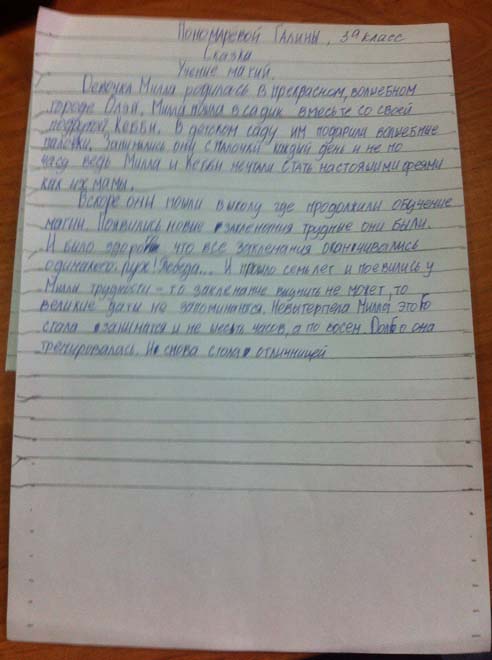 Пономаревой Галины, 3а класс
Сказка
Учение магий.
Девочка Милла родилась в прекрасном, волшебном
городе Олэй. Милла пошла в садик вместьте со своей
подругой Кебби. В детском саду им подарили волшебные
палочки. Занимались они с палочки каждий день и не по
часу ведь Милла и Кебби мечтали стать настоящими феями
как их мамы.
Вскоре они пошли вшколу где продолжили обучение
магии. Появились новые закленания трудные они были.
И было здорово что все закленания оканчивались
одинаково. Пурх! Победа... И прошло семь лет и поевились у
Миллы трудности - то закленание выучить не может, то
великие даты не запоминаются. Невытерпела Милла этого
стала заниматся и не шесть часов, а по восем. Долго она
тренировалась. И снова стала отличницей